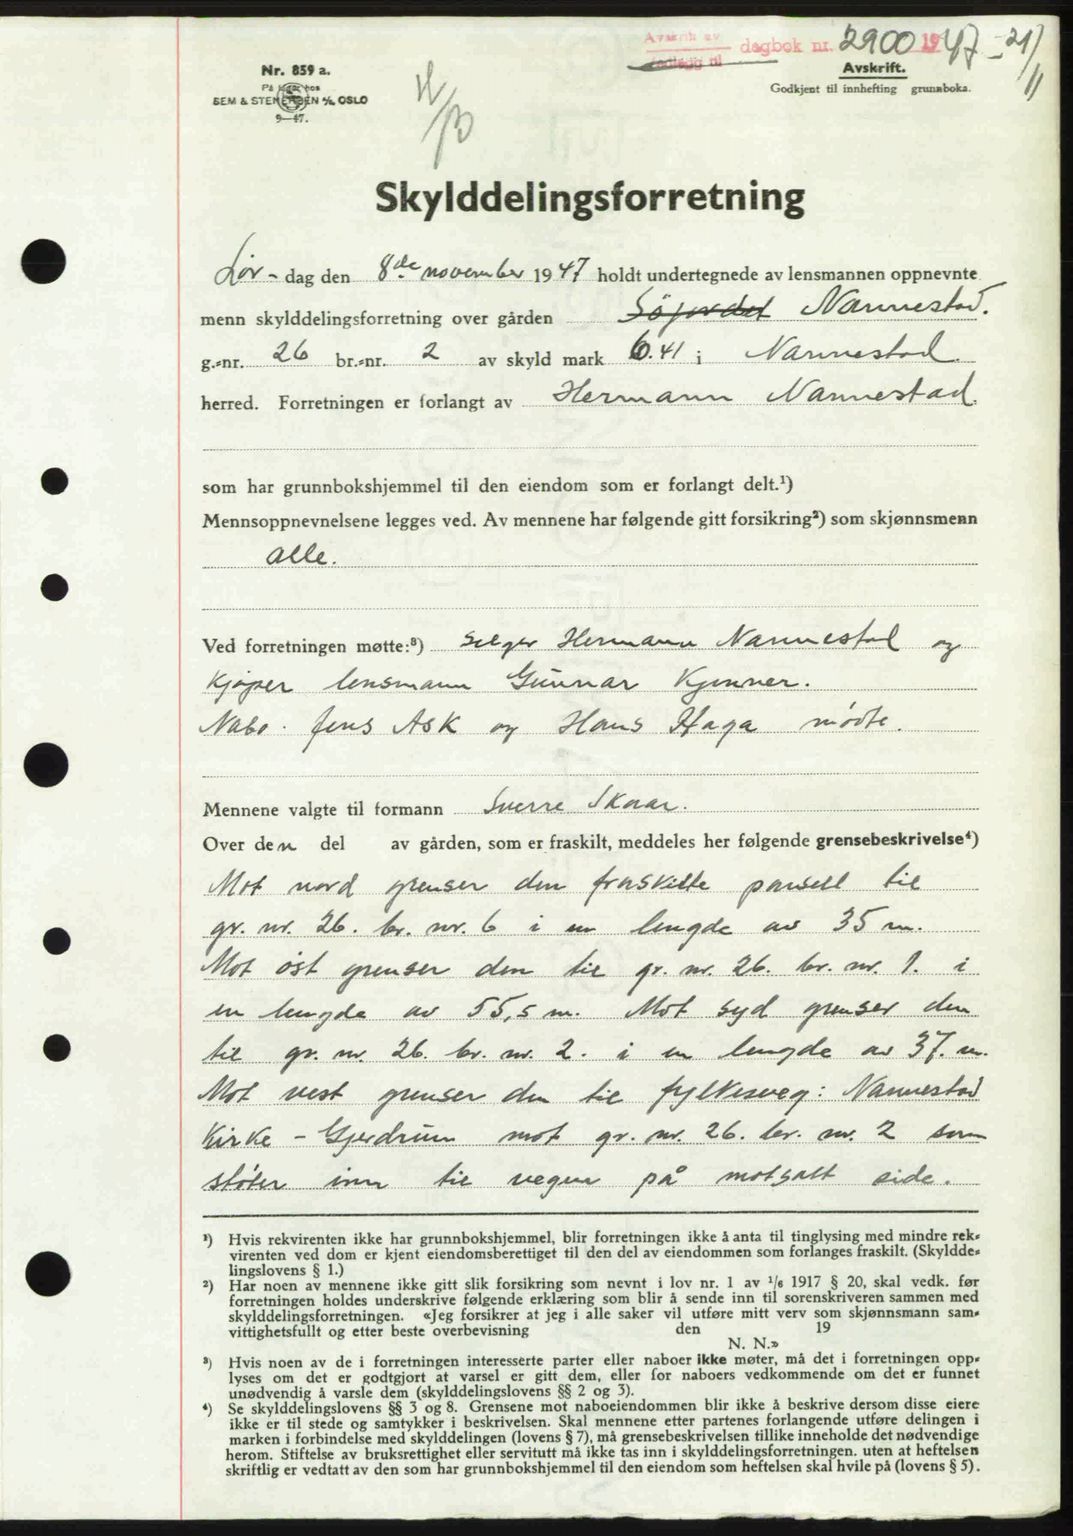 Avskrift av dagbok nr. 2900 1947 - 21/11
Nr. 859 a.
På lager hos
SEM & STENERSEN A/S, OSLO
9—47.
Avskrift.
Godkjent til innhefting grunnboka.
Skylddelingsforretning
Lør- dag den 8de november 1947 holdt undertegnede av lensmannen oppnevnte
menn skylddelingsforretning over gården Nannestad.
g.-nr. 26 br.-nr. 2 av skyld mark 6.41 i Nannestad
herred. Forretningen er forlangt av Hermann Nannestad.
som har grunnbokshjemmel til den eiendom som er forlangt delt.¹)
Mennsoppnevnelsene legges ved. Av mennene har følgende gitt forsikring²) som skjønnsmenn
alle.
Ved forretningen møtte:³) Selger Hermann Nannestad og
Kjøper lensmann Gunnar Kjenner.
Nabo. Jens Ask og Hans Haga mødte.
Mennene valgte til formann Sverre Skaar.
Over den del av gården, som er fraskilt, meddeles her følgende grensebeskrivelse⁴)
Mot nord grenser den fraskilte parsell til
gr. nr. 26. br. nr. 6 i en lengde av 35 m.
Mot øst grenser den til gr. nr. 26. br. nr. 1. i
en lengde av 55,5 m. Mot syd grenser den
til gr. nr. 26. br. nr. 2. i en lengde av 37. m.
Mot vest grenser den til fylkesveg: Nannestad
Kirke - Gjerdrum mot gr. nr. 26. br. nr. 2 som
støter inn til vegen på motsatt side.
¹) Hvis rekvirenten ikke har grunnbokshjemmel, blir forretningen ikke å anta til tinglysing med mindre rek-
virenten ved dom er kjent eiendomsberettiget til den del av eiendommen som forlanges fraskilt. (Skyldde-
lingslovens § 1.)
²) Har noen av mennene ikke gitt slik forsikring som nevnt i lov nr. 1 av 1/6 1917 § 20, skal vedk. før
forretningen holdes underskrive følgende erklæring som blir å sende inn til sorenskriveren sammen med
skylddelingsforretningen. «Jeg forsikrer at jeg i alle saker vil utføre mitt verv som skjønnsmann sam-
vittighetsfullt og etter beste overbevisning den 19
N. N.»
³) Hvis noen av de i forretningen interesserte parter eller naboer ikke møter, må det i forretningen opp-
lyses om det er godtgjort at varsel er gitt dem, eller for naboers vedkommende om det er funnet
unødvendig å varsle dem (skylddelingslovens §§ 2 og 3).
⁴) Se skylddelingslovens §§ 3 og 8. Grensene mot naboeiendommen blir ikke å beskrive dersom disse eiere
ikke er til stede og samtykker i beskrivelsen. Skal mennene etter partenes forlangende utføre delingen i
marken i forbindelse med skylddelingen (lovens § 7), må grensebeskrivelsen tillike inneholde det nødvendige
herom. Stiftelse av bruksrettighet eller servitutt må ikke tas inn i skylddelingsforretningen. uten at heftelsen
skriftlig er vedtatt av den som har grunnbokshjemmel til den eiendom som heftelsen skal hvile på (lovens § 5).